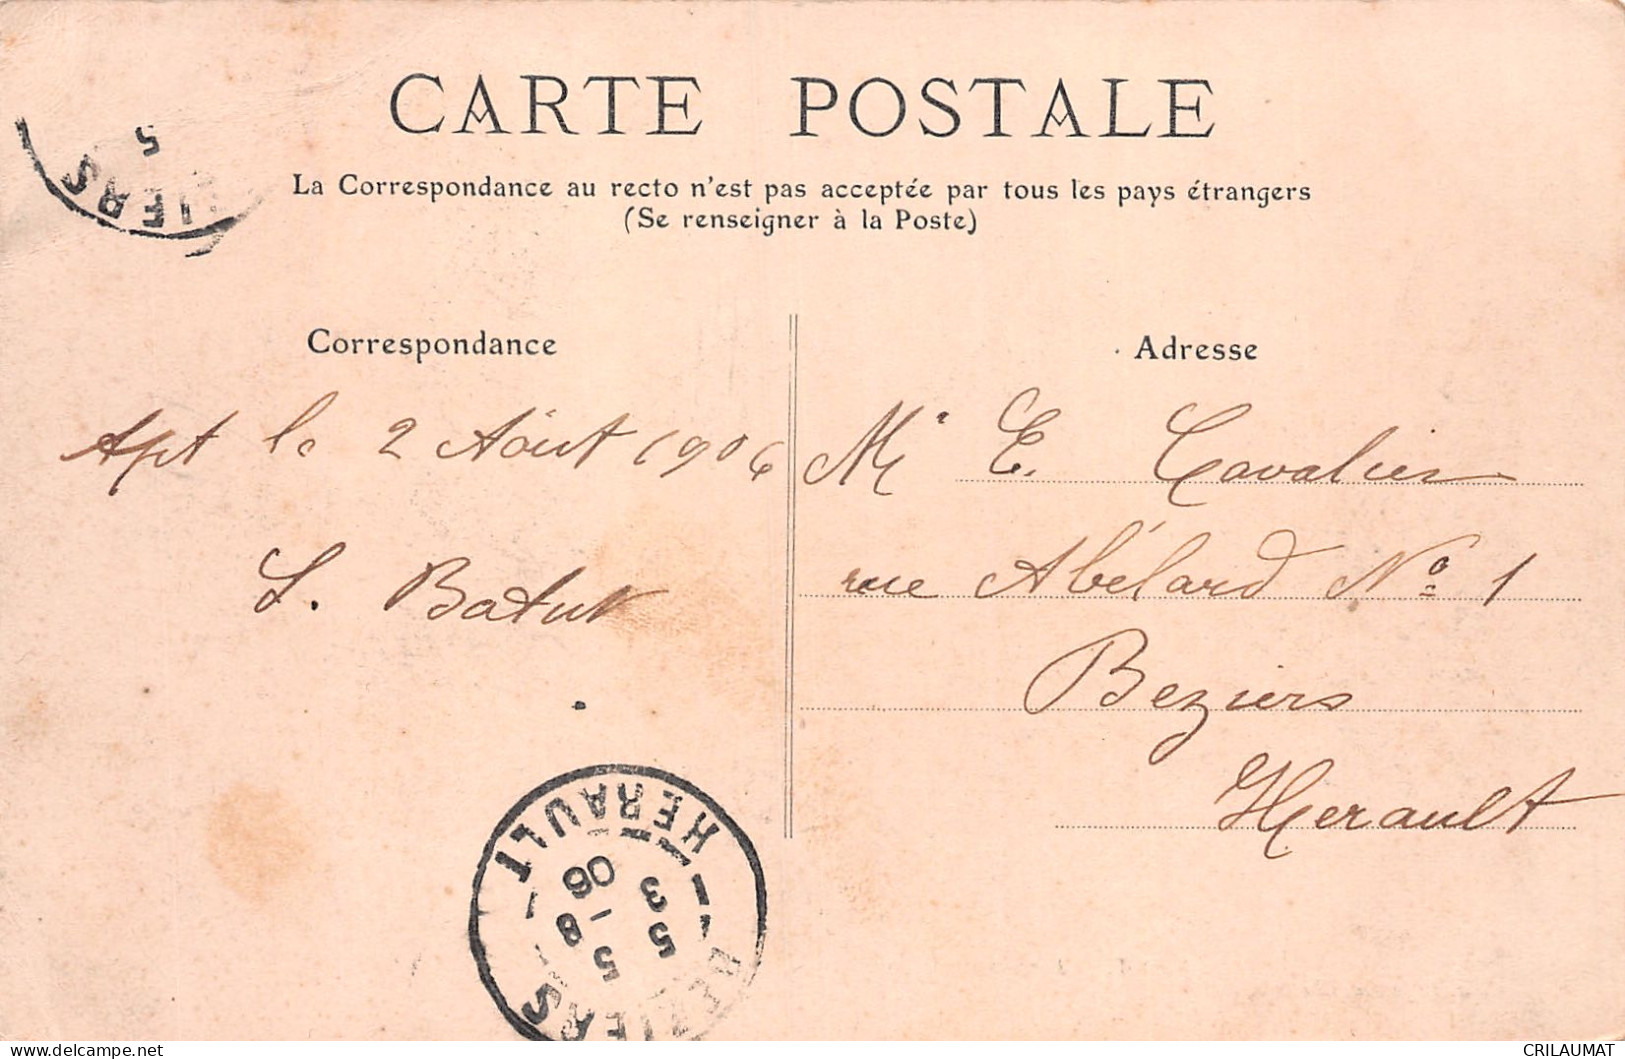 CARTE POSTALE
La Correspondance au recto n'est pas acceptée par tous les pays étrangers
(Se renseigner à la Poste)
5
ZIERS
Correspondance
Apt le 2 Août 1906
Batut
Adresse
Mr E. Cavalier
rue Abélard No 1
Beziers
Herault
BEZIERS
5 3
5 - 8
06
HERAULT
CRILAUMAT